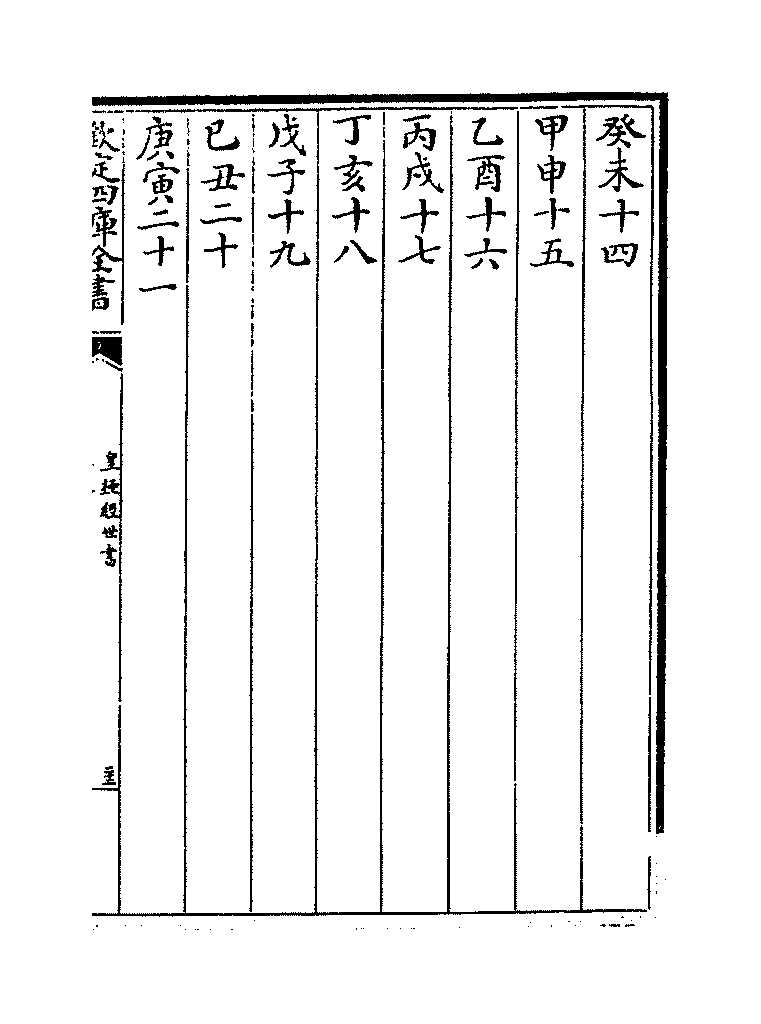 癸未十四
甲申十五
乙酉十六
丙戌十七
丁亥十八
戊子十九
己丑二十
庚寅二十一
欽定四庫全書
皇極經世書